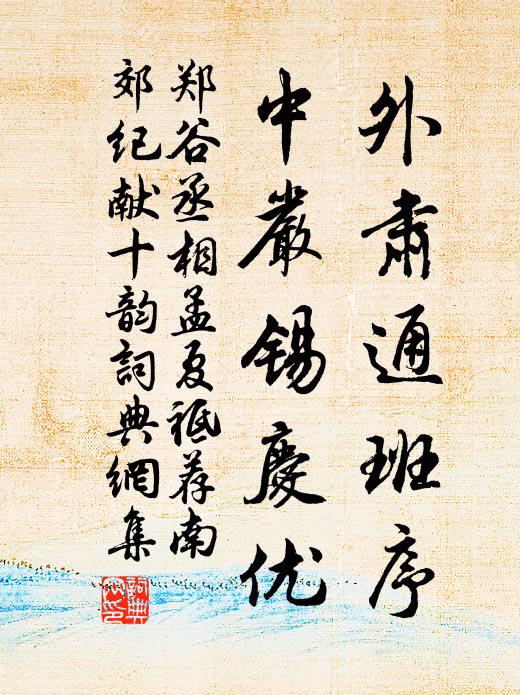 外肅通班序
中嚴錫慶优
郑谷丞相孟夏祗荐南
郊纪献十韵詞典網集